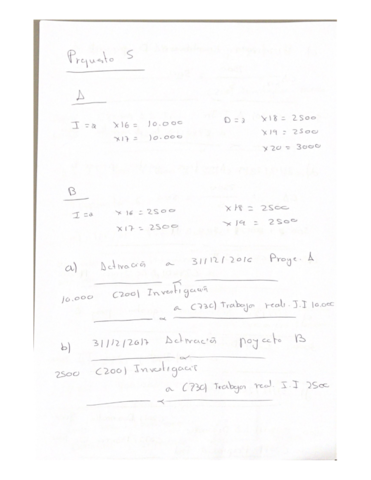 Proyecto 5
A
I => x16 = 10.000 D => x18 = 2500
x17 = 10.000 x19 = 2500
x20 = 3000
B
I => x16 = 2500 x18 = 2500
x17 = 2500 x19 = 2500
a) Activación a 31/12/2016 Proye. A
10.000 (200) Investigación
a (730) Trabajo real. I.I 10.000
b) 31/12/2017 Activación Proyecto B
2500 (200) Investigación
a (730) Trabajos real. I I 2500